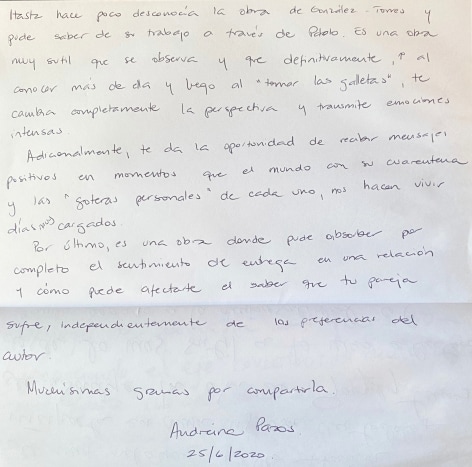 Hasta hace poco desconocía la obra de González-Torres y
pude saber de su trabajo a través de Pololo. Es una obra
muy sutil que se observa y que definitivamente, al
conocer más de ella y luego al "tomar las galletas", te
cambia completamente la perspectiva y transmite emociones
intensas.
Adicionalmente, te da la oportunidad de recibir mensajes
positivos en momentos que el mundo con su cuarentena
y las "goteras personales" de cada uno, nos hacen vivir
días cargados.
Por último, es una obra donde pude absorber por
completo el sentimiento de entrega en una relación
y cómo puede afectarte el saber que tu pareja
sufre, independientemente de las preferencias del
autor.
Muchísimas gracias por compartirla.
Andreina Pazos
25/6/2020.